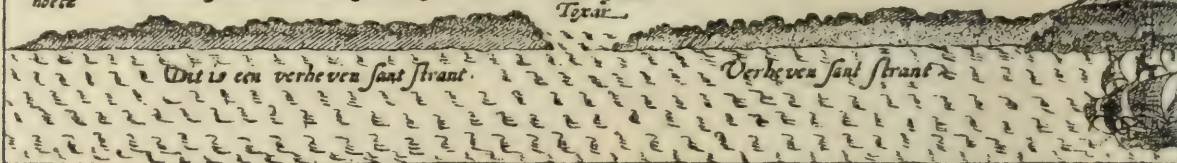 Toxar
Dit is een verheven sant strant.
Verheven sant strant